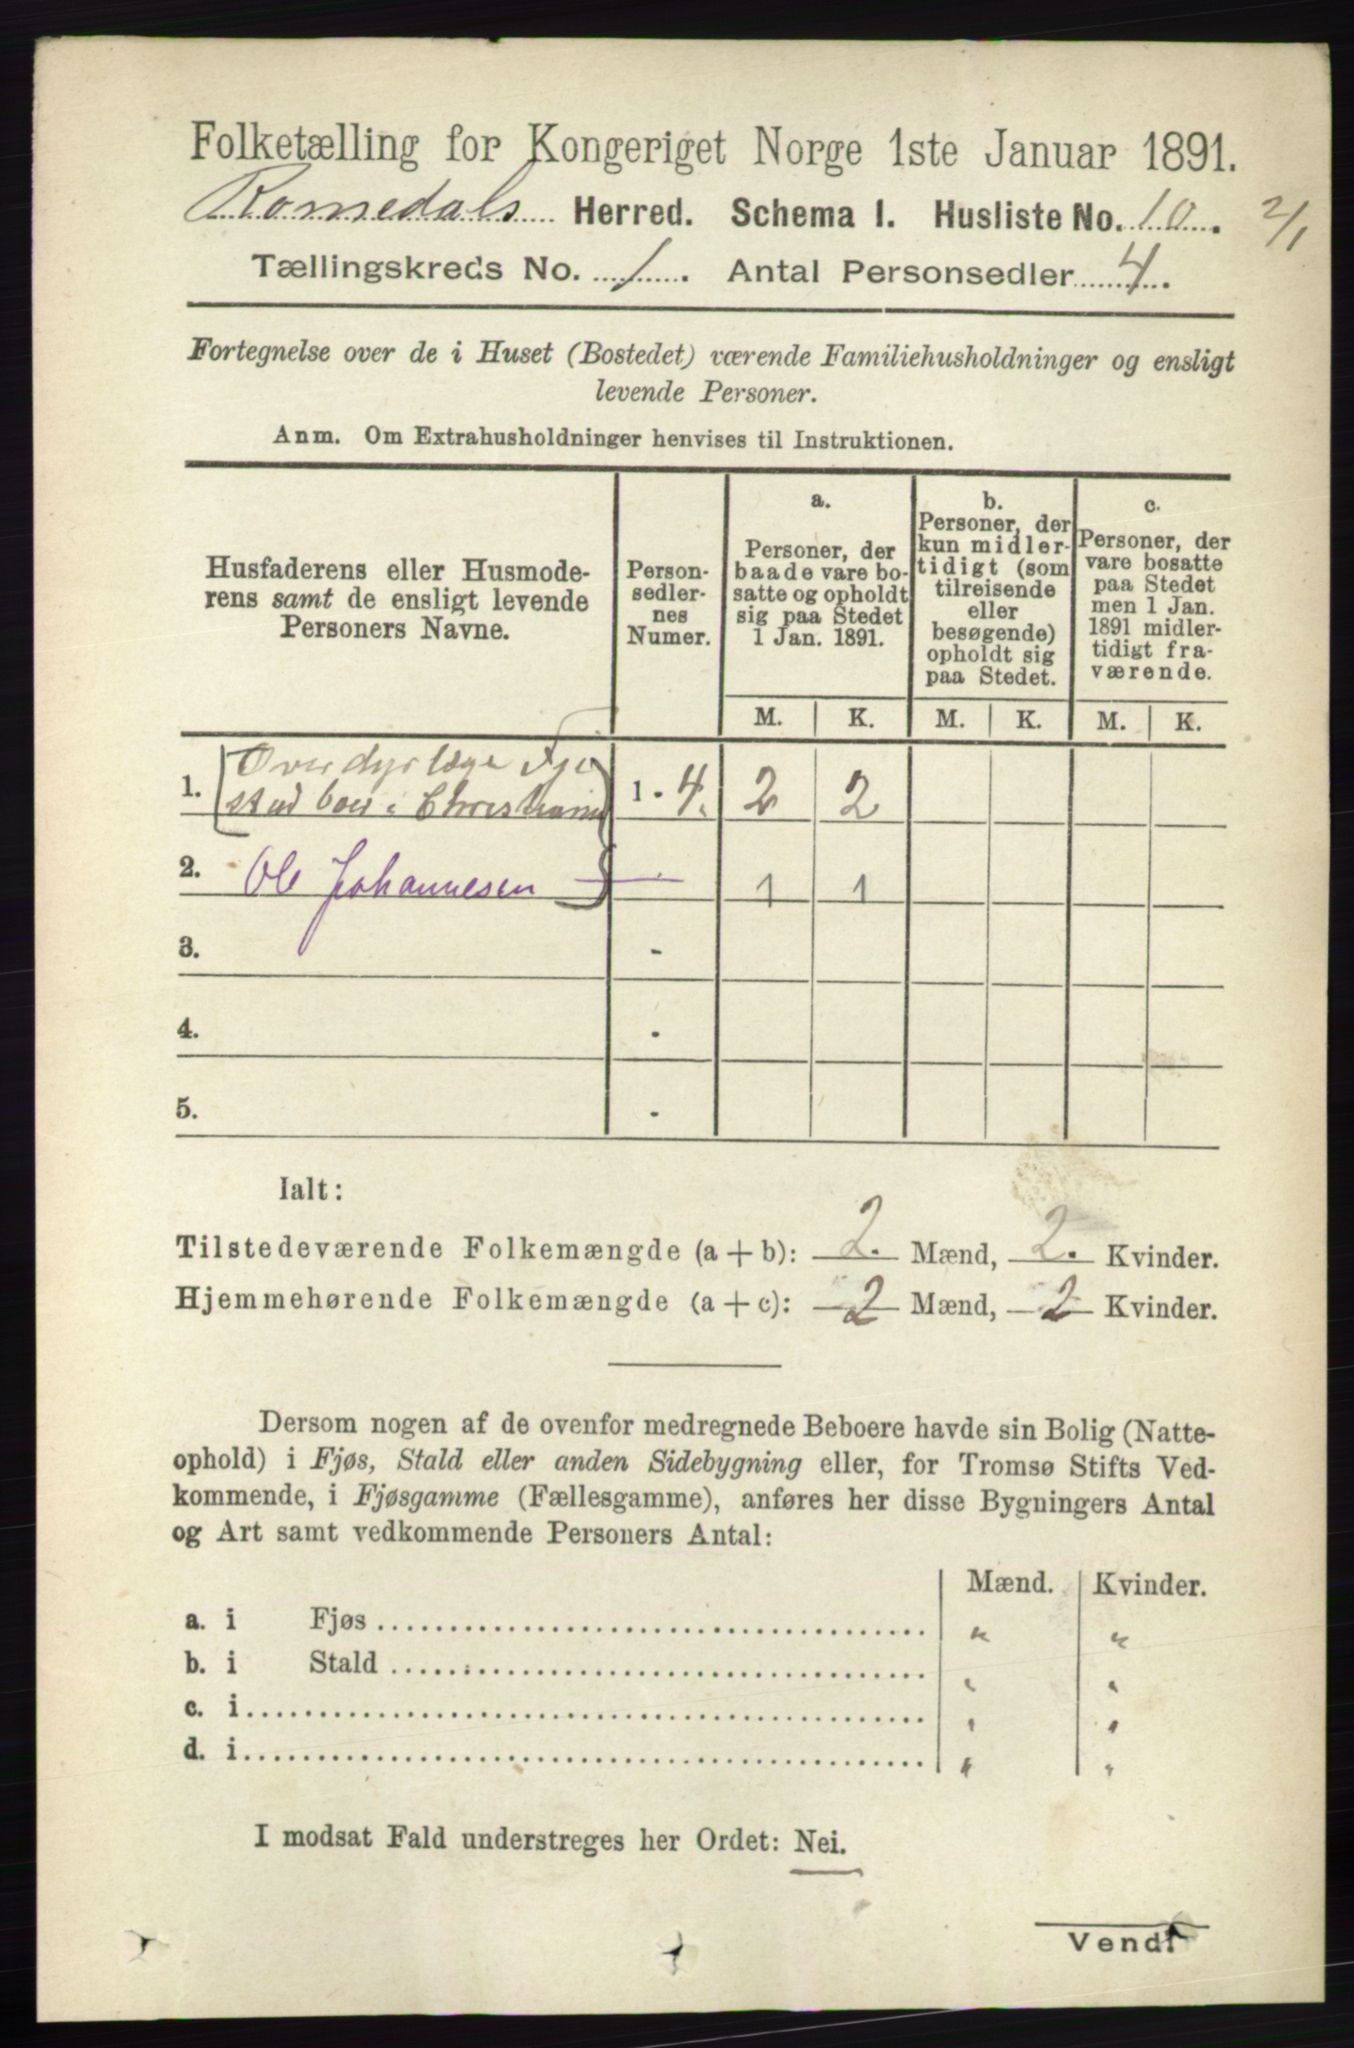 Folketælling for Kongeriget Norge 1ste Januar 1891.
Romedals Herred. Schema I. Husliste No. 10. 2/1
Tællingskreds No. 1. Antal Personsedler 4.
Fortegnelse over de i Huset (Bostedet) værende Familiehusholdninger og ensligt
levende Personer.
Anm. Om Extrahusholdninger henvises til Instruktionen.
Husfaderens eller Husmode-
rens samt de ensligt levende
Personers Navne.
Person-
sedler-
nes
Numer.
a.
Personer, der
baade vare bo-
satte og opholdt
sig paa Stedet
1 Jan. 1891.
b.
Personer, der
kun midler-
tidigt (som
tilreisende
eller
besøgende)
opholdt sig
paa Stedet.
c.
Personer, der
vare bosatte
paa Stedet
men 1 Jan.
1891 midler-
tidigt fra-
værende.
M. K. M. K. M. K.
Overdyrlæge Fje
1. stad boer i Christiania 1 - 4. 2 2
2. Ole Johannesen - 1 1
3. -
4. -
5. -
Ialt:
Tilstedeværende Folkemængde (a + b): 2. Mænd, 2. Kvinder.
Hjemmehørende Folkemængde (a + c): 2 Mænd, 2 Kvinder.
Dersom nogen af de ovenfor medregnede Beboere havde sin Bolig (Natte-
ophold) i Fjøs, Stald eller anden Sidebygning eller, for Tromsø Stifts Ved-
kommende, i Fjøsgamme (Fællesgamme), anføres her disse Bygningers Antal
og Art samt vedkommende Personers Antal:
Mænd. Kvinder.
a. i Fjøs " "
b. i Stald " "
c. i " "
d. i " "
I modsat Fald understreges her Ordet: Nei.
Vend!